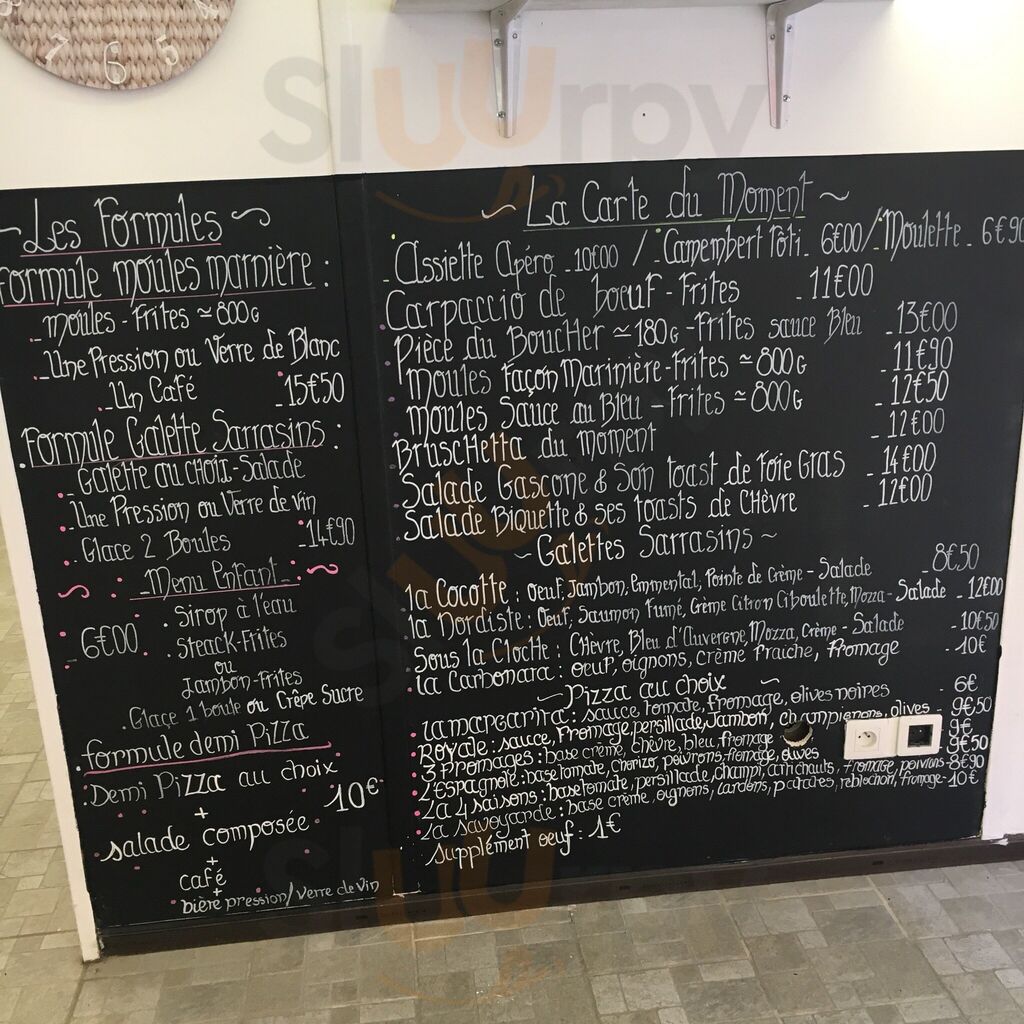 7 6 5
Sluurpy
~ Les Formules ~
Formule moules marnière :
- Moules - Frites ≃ 800G
- Une Pression ou Verre de Blanc
Un Café - 15€50
Formule Galette Sarrasins :
- Galette au choix - Salade
- Une Pression ou Verre de vin
- Glace 2 Boules - 14€90
~ Menu Enfant ~
- 6€00 . Sirop à l'eau
. Steack-Frites
ou
Jambon-Frites
. Glace 1 boule ou Crêpe Sucre
formule demi Pizza
. Demi Pizza au choix
+
salade composée 10€
+
café
+
bière pression/verre de vin
~ La Carte du Moment ~
- Assiette Apéro - 10€00 / Camembert rôti - 6€00 / Moulette - 6€90
- Carpaccio de boeuf - Frites - 11€00
Pièce du Boucher ≃ 180G - Frites sauce Bleu - 13€00
Moules Façon Marinière - Frites ≃ 800G - 11€90
Moules Sauce au Bleu - Frites ≃ 800G - 12€50
Bruschetta du moment - 12€00
Salade Gascone & Son toast de Foie Gras - 14€00
Salade Biquette & ses toasts de Chèvre - 12€00
~ Galettes Sarrasins ~
la Cocotte : Oeuf, Jambon, Emmental, Pointe de Crème - Salade - 8€50
la Nordiste : Oeuf, Saumon Fumé, Crème Citron Ciboulette, Mozza - Salade - 12€00
Sous la Cloche : Chèvre, Bleu d'Auvergne, Mozza, Crème - Salade - 10€50
la Carbonara : oeuf, oignons, crème fraiche, fromage - 10€
~ Pizza au choix
la margarita : sauce tomate, fromage, olives noires - 6€
Royale : sauce, fromage, persillade, Jambon, champignons, olives - 9€50
3 fromages : base crème, chèvre, bleu, fromage - 9€
L'Espagnole : base tomate, chorizo, poivrons, fromage, olives - 9€50
La 4 saisons : base tomate, persillade, champi, artichauts, fromage, poivrons - 8€90
la savoyarde : base crème, oignons, lardons, patates, reblochon, fromage - 10€
supplément oeuf : 1€